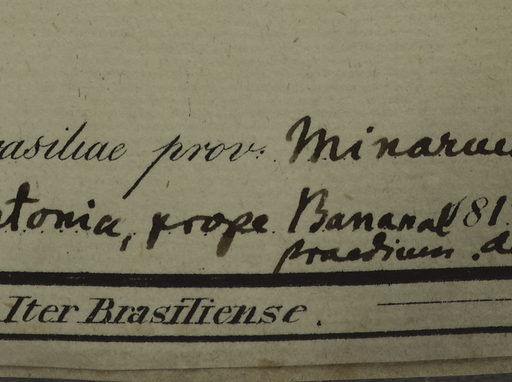 rasiliae prov. Minarum
ntonia, prope Bananal 81.
praedium. d
Iter Brasiliense.